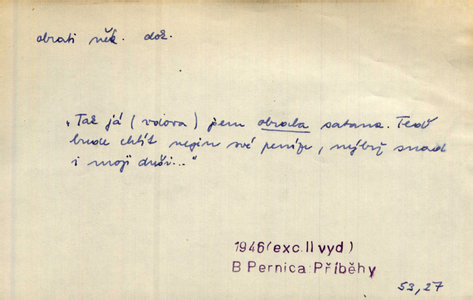 obrati něk. dož.
„Tož já (vdova) jsem obrala satana. Teď
bude chtít nejen své peníze, nýbrž snad
i moji duši..."
1946(exc.II vyd)
B Pernica:Příběhy
53,27